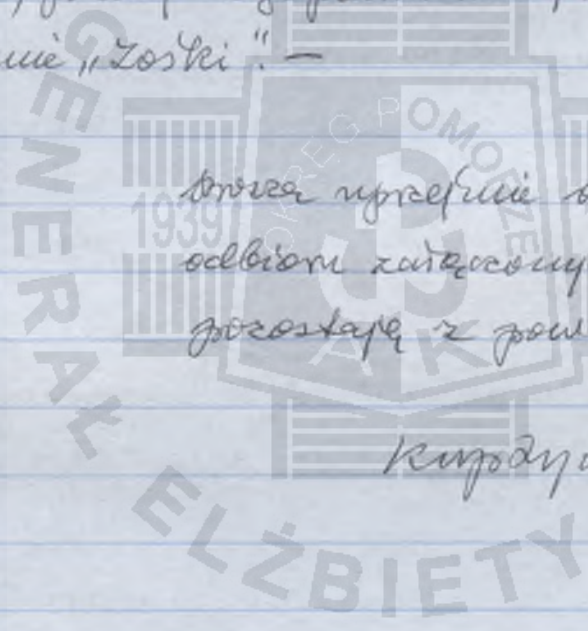 nie „Zośki”. —
Proszę uprzejmie
odbioru załączony
pozostaję z
GENERAŁ ELŻBIETY
OKRĘG POMORZE
1939
AK